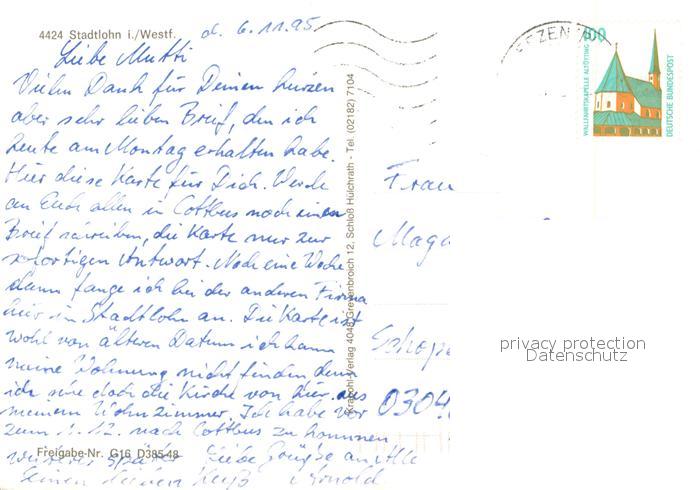 4424 Stadtlohn i./Westf.
d. 6.11.95
Liebe Mutti
Vielen Dank für Deinen kurzen
aber sehr lieben Brief, den ich
heute am Montag erhalten habe.
Hier diese Karte für Dich. Werde
an Euch allen in Cottbus noch einen
Brief schreiben, die Karte nur zur
sofortigen Antwort. Noch eine Woche
dann fange ich bei der anderen Firma
hier in Stadtlohn an. Die Karte ist
wohl von älteren Datum ich kann
meine Wohnung nicht finden denn
ich sehe doch die Kirche von hier aus
meinem Wohnzimmer. Ich habe vor
zum 1.12. nach Cottbus zu kommen
Liebe Grüße an Alle
Freigabe-Nr. G16 D385-48
Krapohl-Verlag 4048 Grevenbroich 12, Schloß Hülchrath - Tel. (02182) 7104
100
WALLFAHRTSKAPELLE ALTÖTTING
DEUTSCHE BUNDESPOST
Frau
Maga
0304
privacy protection
Datenschutz